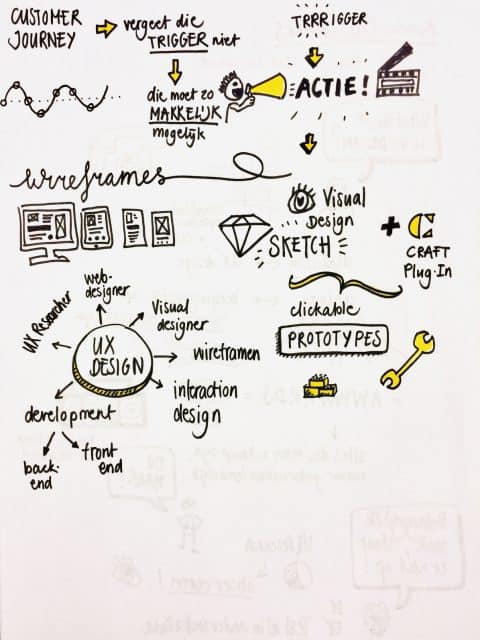 CUSTOMER
JOURNEY
vergeet die
TRIGGER niet
die moet zo
MAKKELIJK
mogelijk
TRRRIGGER
ACTIE!
wireframes
Visual
Design
SKETCH
+
CRAFT
Plug-In
clickable
PROTOTYPES
UX
DESIGN
UX Researcher
web-
designer
Visual
designer
wireframen
interaction
design
development
back-
end
front
end